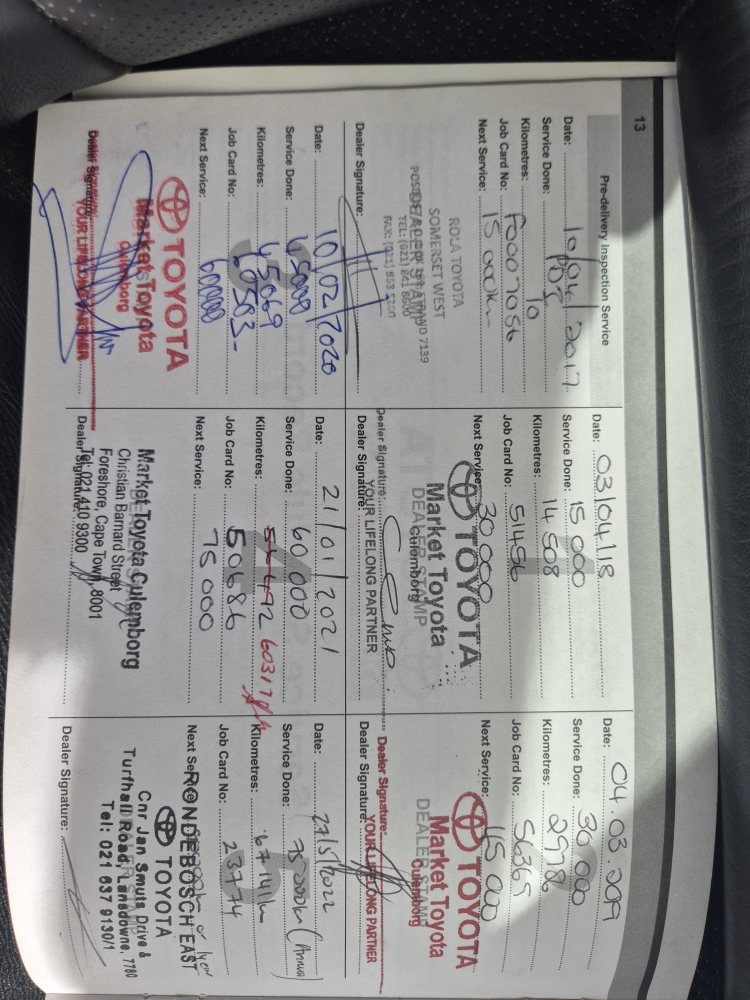 13
Pre-delivery Inspection Service
Date: 10/04/2017
Service Done: PDI
Kilometres: 10
Job Card No: F0007056
Next Service: 15 000k
ROLA TOYOTA
SOMERSET WEST
DEALER STAMP
TEL: (021) 841 8600
FAX: (021) 853 5200
Dealer Signature:
Date: 03/04/18
Service Done: 15 000
Kilometres: 14 508
Job Card No: 51456
Next Service: 30 000
TOYOTA
Market Toyota
Culemborg
DEALER STAMP
Dealer Signature:
YOUR LIFELONG PARTNER
Dealer Signature:
Date: 04.03.209
Service Done: 30 000
Kilometres: 29786
Job Card No: 56365
Next Service: 45 000
TOYOTA
Market Toyota
Culemborg
DEALER STAMP
Dealer Signature:
YOUR LIFELONG PARTNER
Dealer Signature:
Date: 10/02/2020
Service Done: 45000
Kilometres: 45069
Job Card No: 67503
Next Service: 60000
TOYOTA
Market Toyota
Culemborg
Dealer Signature:
YOUR LIFELONG PARTNER
Date: 21/01/2021
Service Done: 60 000
Kilometres: 60317
Job Card No: 50686
Next Service: 75 000
Market Toyota Culemborg
Christian Barnard Street
Foreshore, Cape Town, 8001
Tel: 021 410 9300
Dealer Signature:
Date: 27/5/2022
Service Done: 75 000k (Annual)
Kilometres: 67141k
Job Card No: 23774
Next Service:
RONDEBOSCH EAST
TOYOTA
Cnr Jan Smuts Drive &
Turfhall Road, Lansdowne, 7780
Tel: 021 637 9130/1
Dealer Signature: